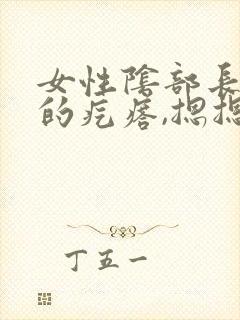 女性陰部長
的疙瘩,摁
丁五一